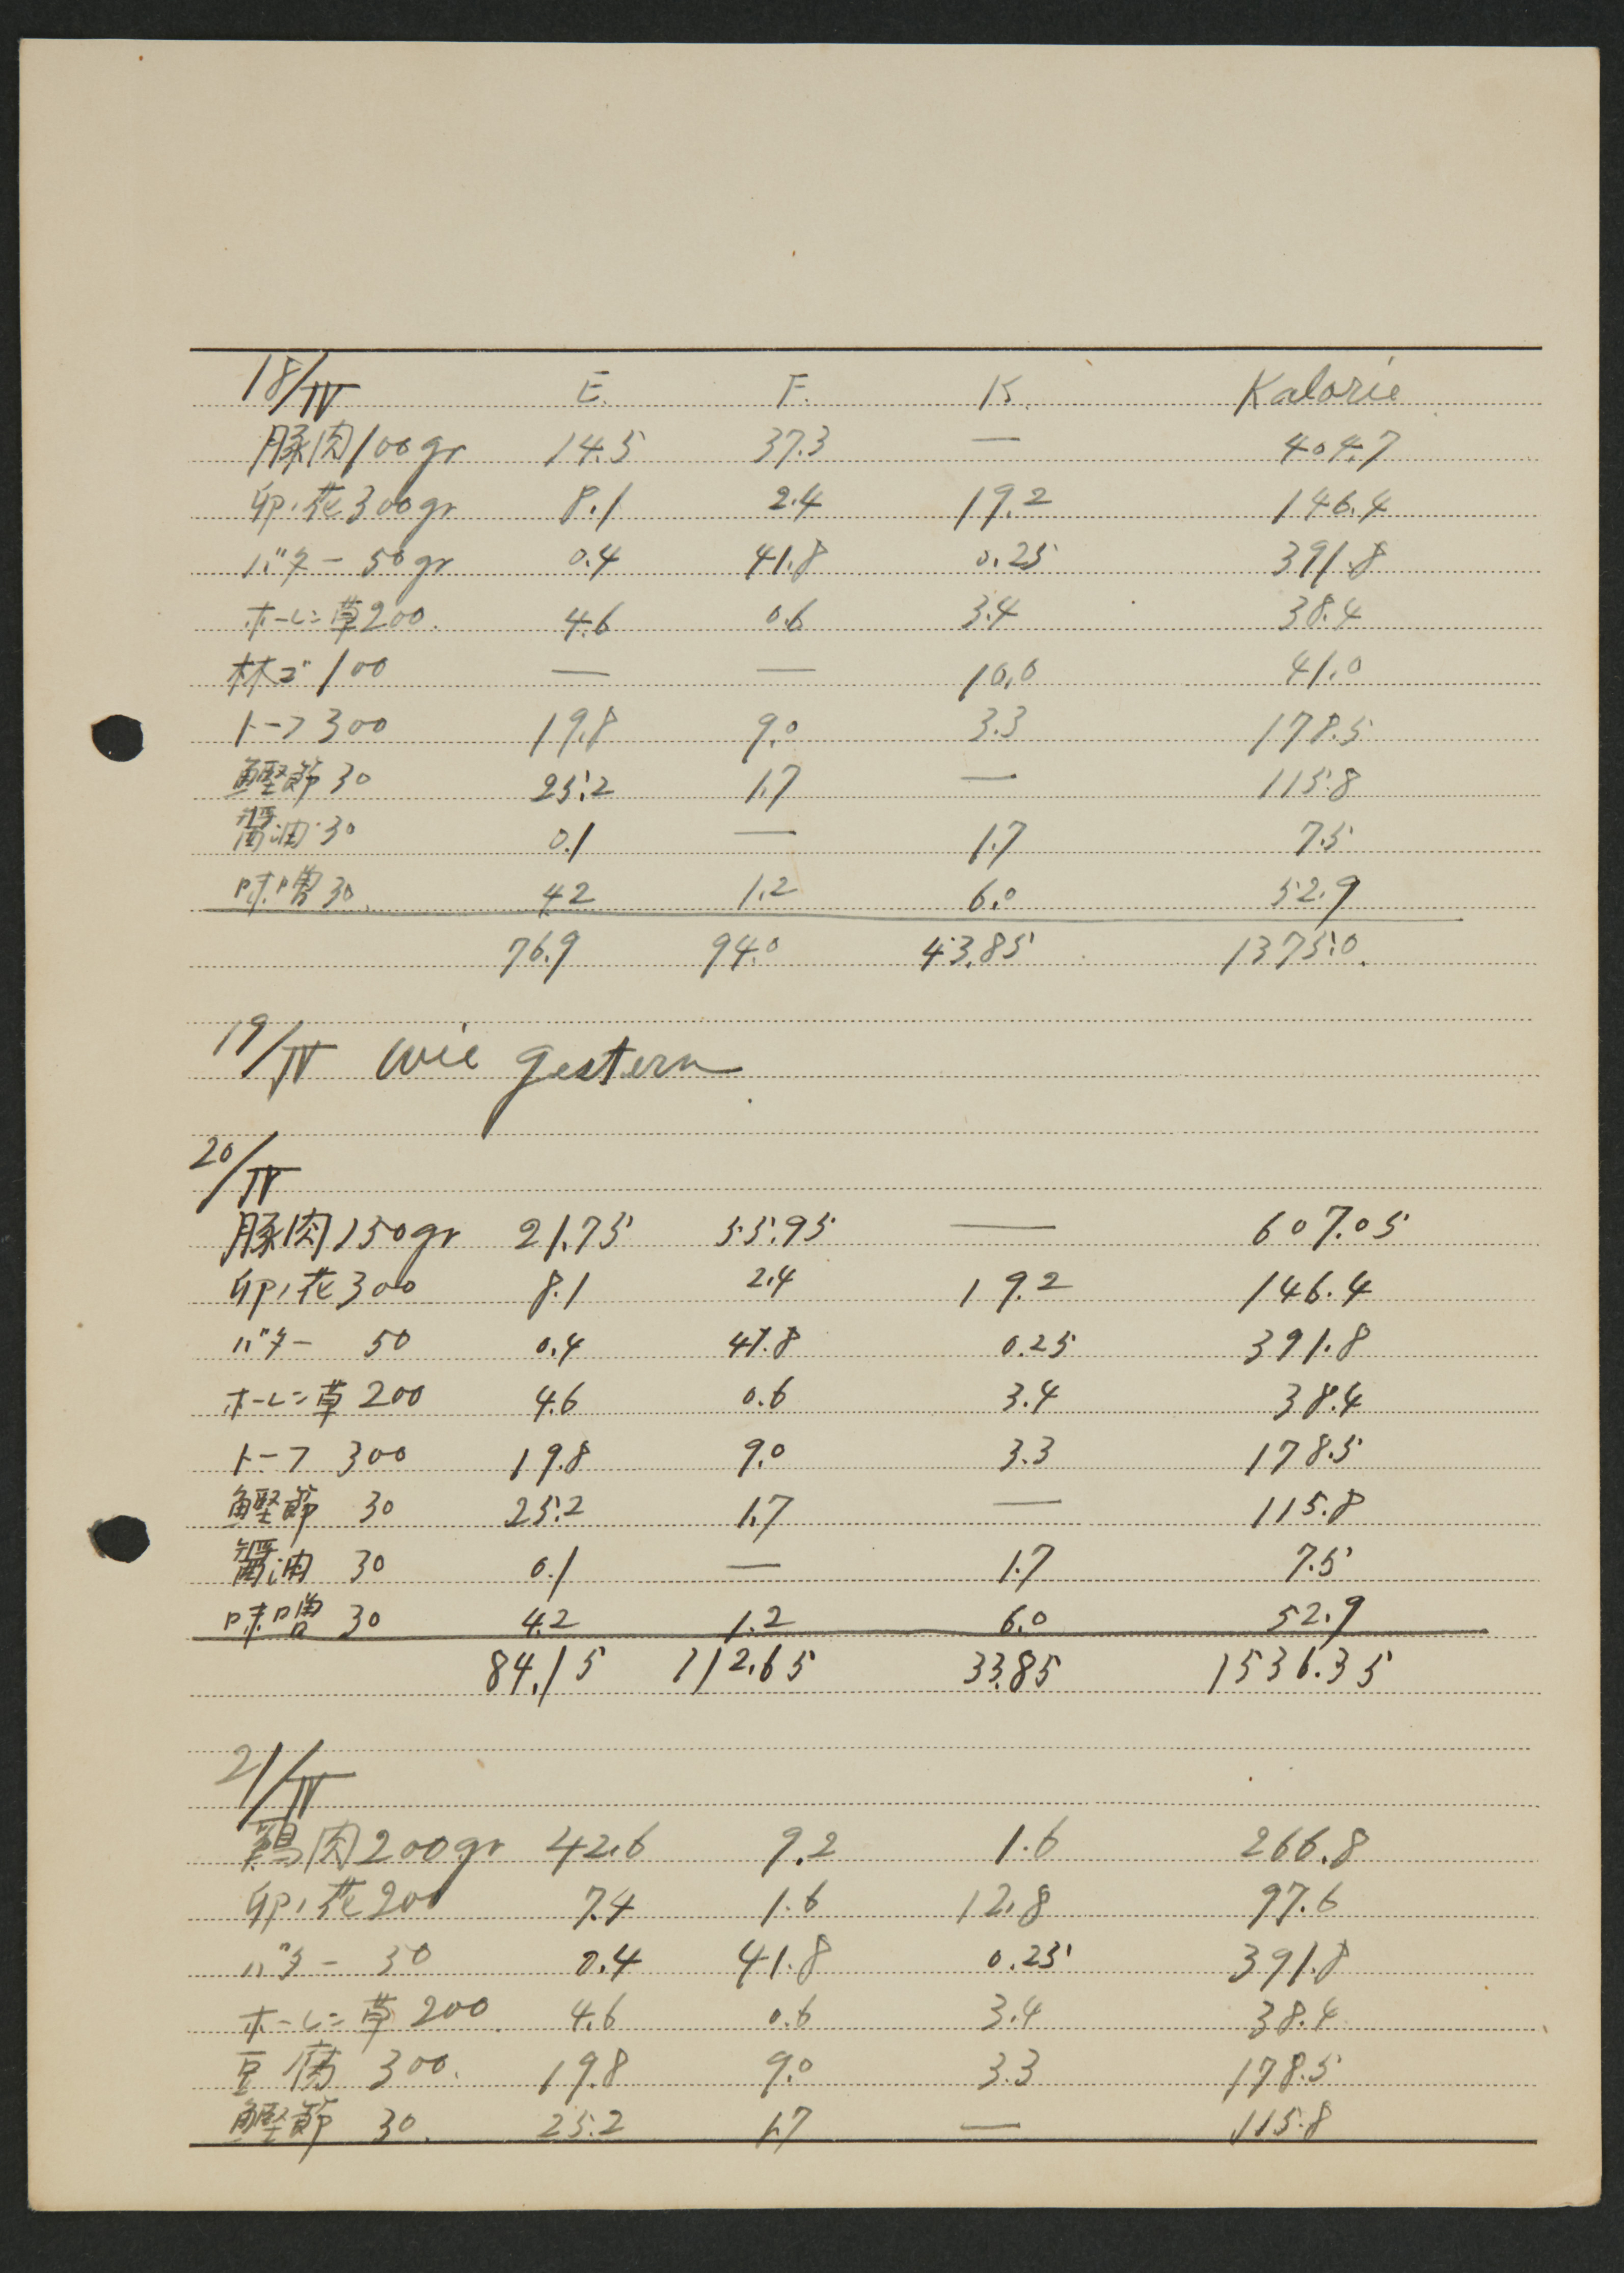 18/IV E. F. K. Kalorie
豚肉100gr 14.5 37.3 — 404.7
卯ノ花300gr 8.1 2.4 19.2 146.4
バター 50gr 0.4 41.8 0.25 391.8
ホーレン草200. 4.6 0.6 3.4 38.4
林ゴ100 — — 10.0 41.0
トーフ300 19.8 9.0 3.3 178.5
鰹節30 25.2 1.7 — 115.8
醤油30 0.1 — 1.7 7.5
味噌30. 4.2 1.2 6.0 52.9
76.9 94.0 43.85 1375.0.
19/IV wie gestern
20/IV
豚肉150gr 21.75 55.95 — 607.05
卯ノ花300 8.1 2.4 19.2 146.4
バター 50 0.4 41.8 0.25 391.8
ホーレン草 200 4.6 0.6 3.4 38.4
トーフ 300 19.8 9.0 3.3 178.5
鰹節 30 25.2 1.7 — 115.8
醤油 30 0.1 — 1.7 7.5
味噌 30 4.2 1.2 6.0 52.9
84.15 112.65 33.85 1536.35
21/IV
鶏肉200gr 42.6 9.2 1.6 266.8
卯ノ花200 7.4 1.6 12.8 97.6
バター 50 0.4 41.8 0.25 391.8
ホーレン草 200. 4.6 0.6 3.4 38.4
豆腐 300. 19.8 9.0 3.3 178.5
鰹節 30. 25.2 1.7 — 115.8